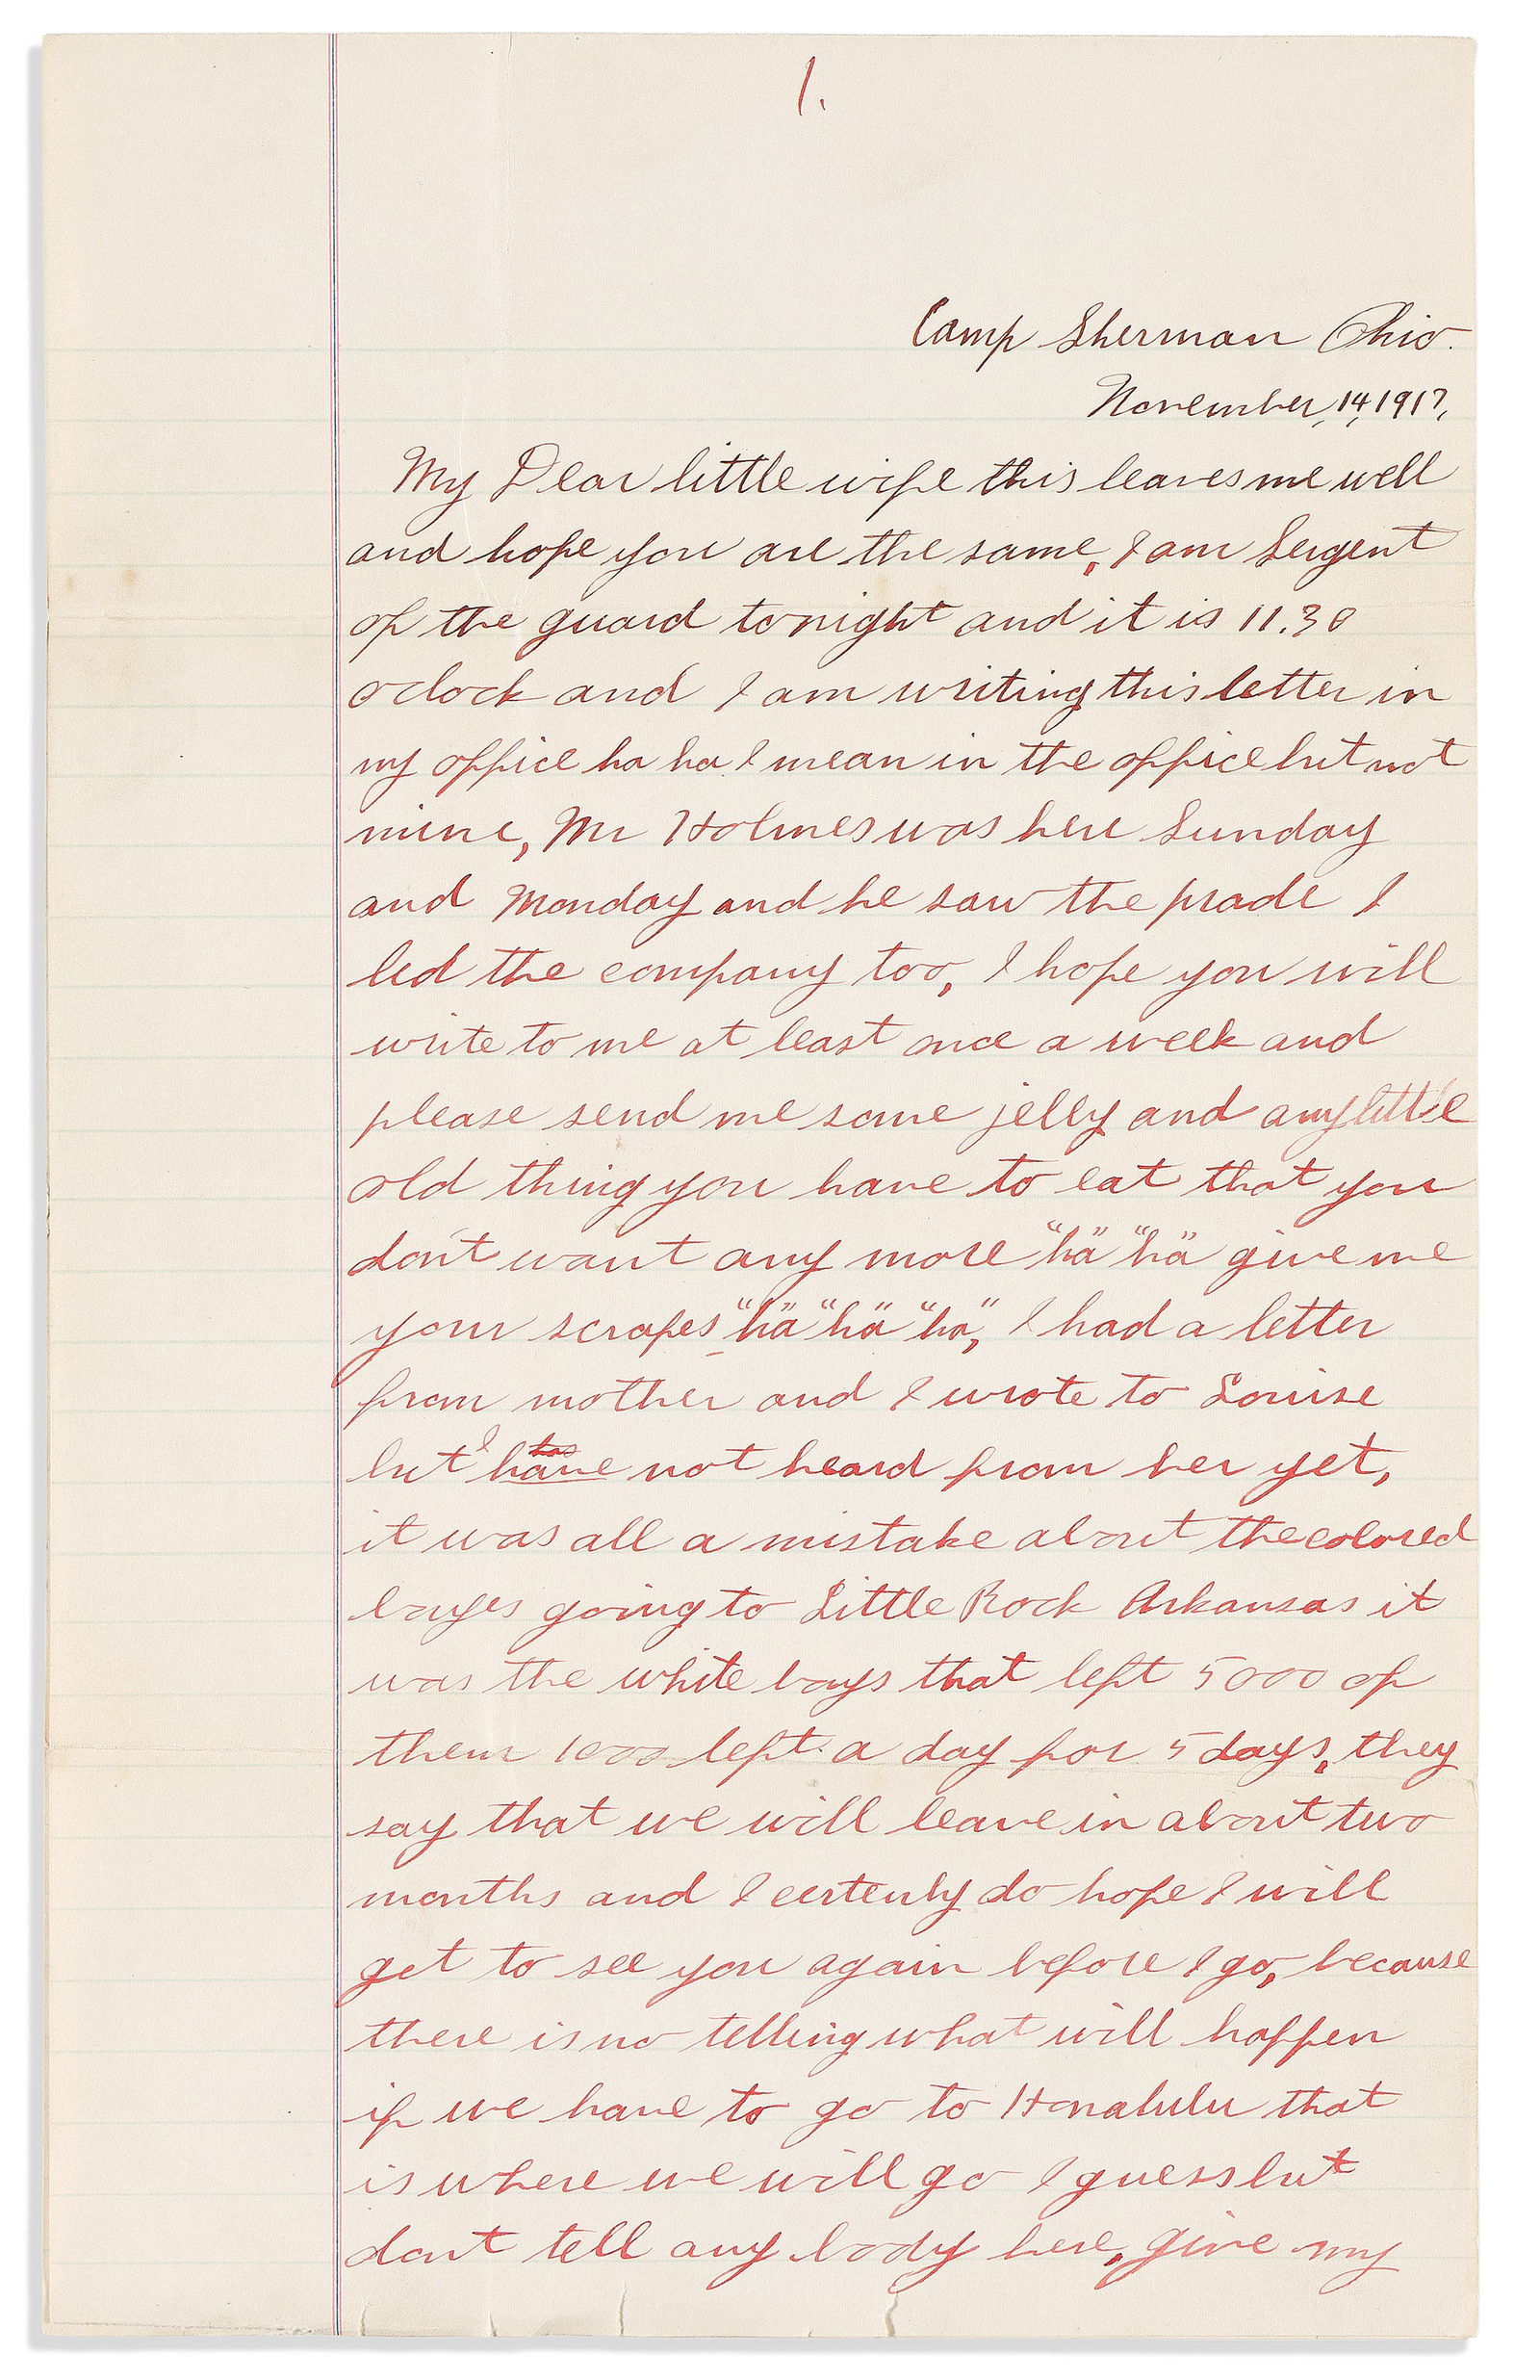 1.
Camp Sherman Ohio.
November, 14, 1917,
My Dear little wife this leaves me well
and hope you are the same, I am Sergent
of the guard tonight and it is 11.30
oclock and I am writing this letter in
my office ha ha I mean in the office but not
mine, Mr Holmes was here Sunday
and Monday and he saw the prade I
led the company too, I hope you will
write to me at least once a week and
please send me some jelly and any little
old thing you have to eat that you
don't want any more "ha" "ha" give me
your scrapes "ha" "ha" "ha," I had a letter
from mother and I wrote to Louise
but I have not heard from her yet,
it was all a mistake about the colored
boyes going to Little Rock Arkansas it
was the white boys that left 5000 of
them 1000 left a day for 5 days, they
say that we will leave in about two
months and I certenly do hope I will
get to see you again before I go, because
there is no telling what will happen
if we have to go to Honalulu that
is where we will go I guess but
dont tell any body here, give my